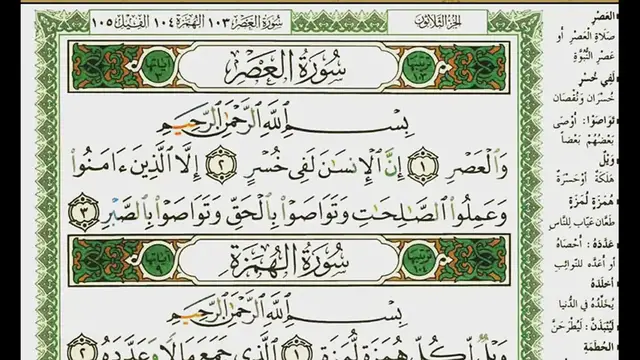 سُورَةُ العَصْر ١٠٣ الهُمَزَة ١٠٤ الفِيل ١٠٥
الجُزءُ الثَّلَاثُون
آيَاتُهَا ٣
سُورَةُ العَصْرِ
تَرْتِيبُهَا ١٠٣
بِسْمِ ٱللَّهِ ٱلرَّحْمَٰنِ ٱلرَّحِيمِ
وَٱلْعَصْرِ ١ إِنَّ ٱلْإِنسَٰنَ لَفِى خُسْرٍ ٢ إِلَّا ٱلَّذِينَ ءَامَنُوا۟
وَعَمِلُوا۟ ٱلصَّٰلِحَٰتِ وَتَوَاصَوْا۟ بِٱلْحَقِّ وَتَوَاصَوْا۟ بِٱلصَّبْرِ ٣
آيَاتُهَا ٩
سُورَةُ الهُمَزَةِ
تَرْتِيبُهَا ١٠٤
بِسْمِ ٱللَّهِ ٱلرَّحْمَٰنِ ٱلرَّحِيمِ
وَيْلٌ لِّكُلِّ هُمَزَةٍ لُّمَزَةٍ ١ ٱلَّذِى جَمَعَ مَالًا وَعَدَّدَهُۥ ٢
العَصْرِ
صَلَاةِ الْعَصْرِ أو
عَصْرِ النُّبُوَّةِ
لَفِي خُسْرٍ
خُسْرَانٍ وَنُقْصَان
تَوَاصَوْا : أَوْصَى
بَعْضُهُمْ بَعْضاً
وَيْلٌ
هَلَكَةٌ أو حَسْرَةٌ
هُمَزَةٍ لُمَزَةٍ
طَعَّانٍ عَيَّابٍ لِلنَّاسِ
عَدَّدَهُ : أَحْصَاهُ
أو أَعَدَّهُ للنَّوائِبِ
أَخْلَدَهُ
يُخَلِّدُهُ في الدُّنيا
لَيُنْبَذَنَّ : لَيُطْرَحَنَّ
الحُطَمَةِ